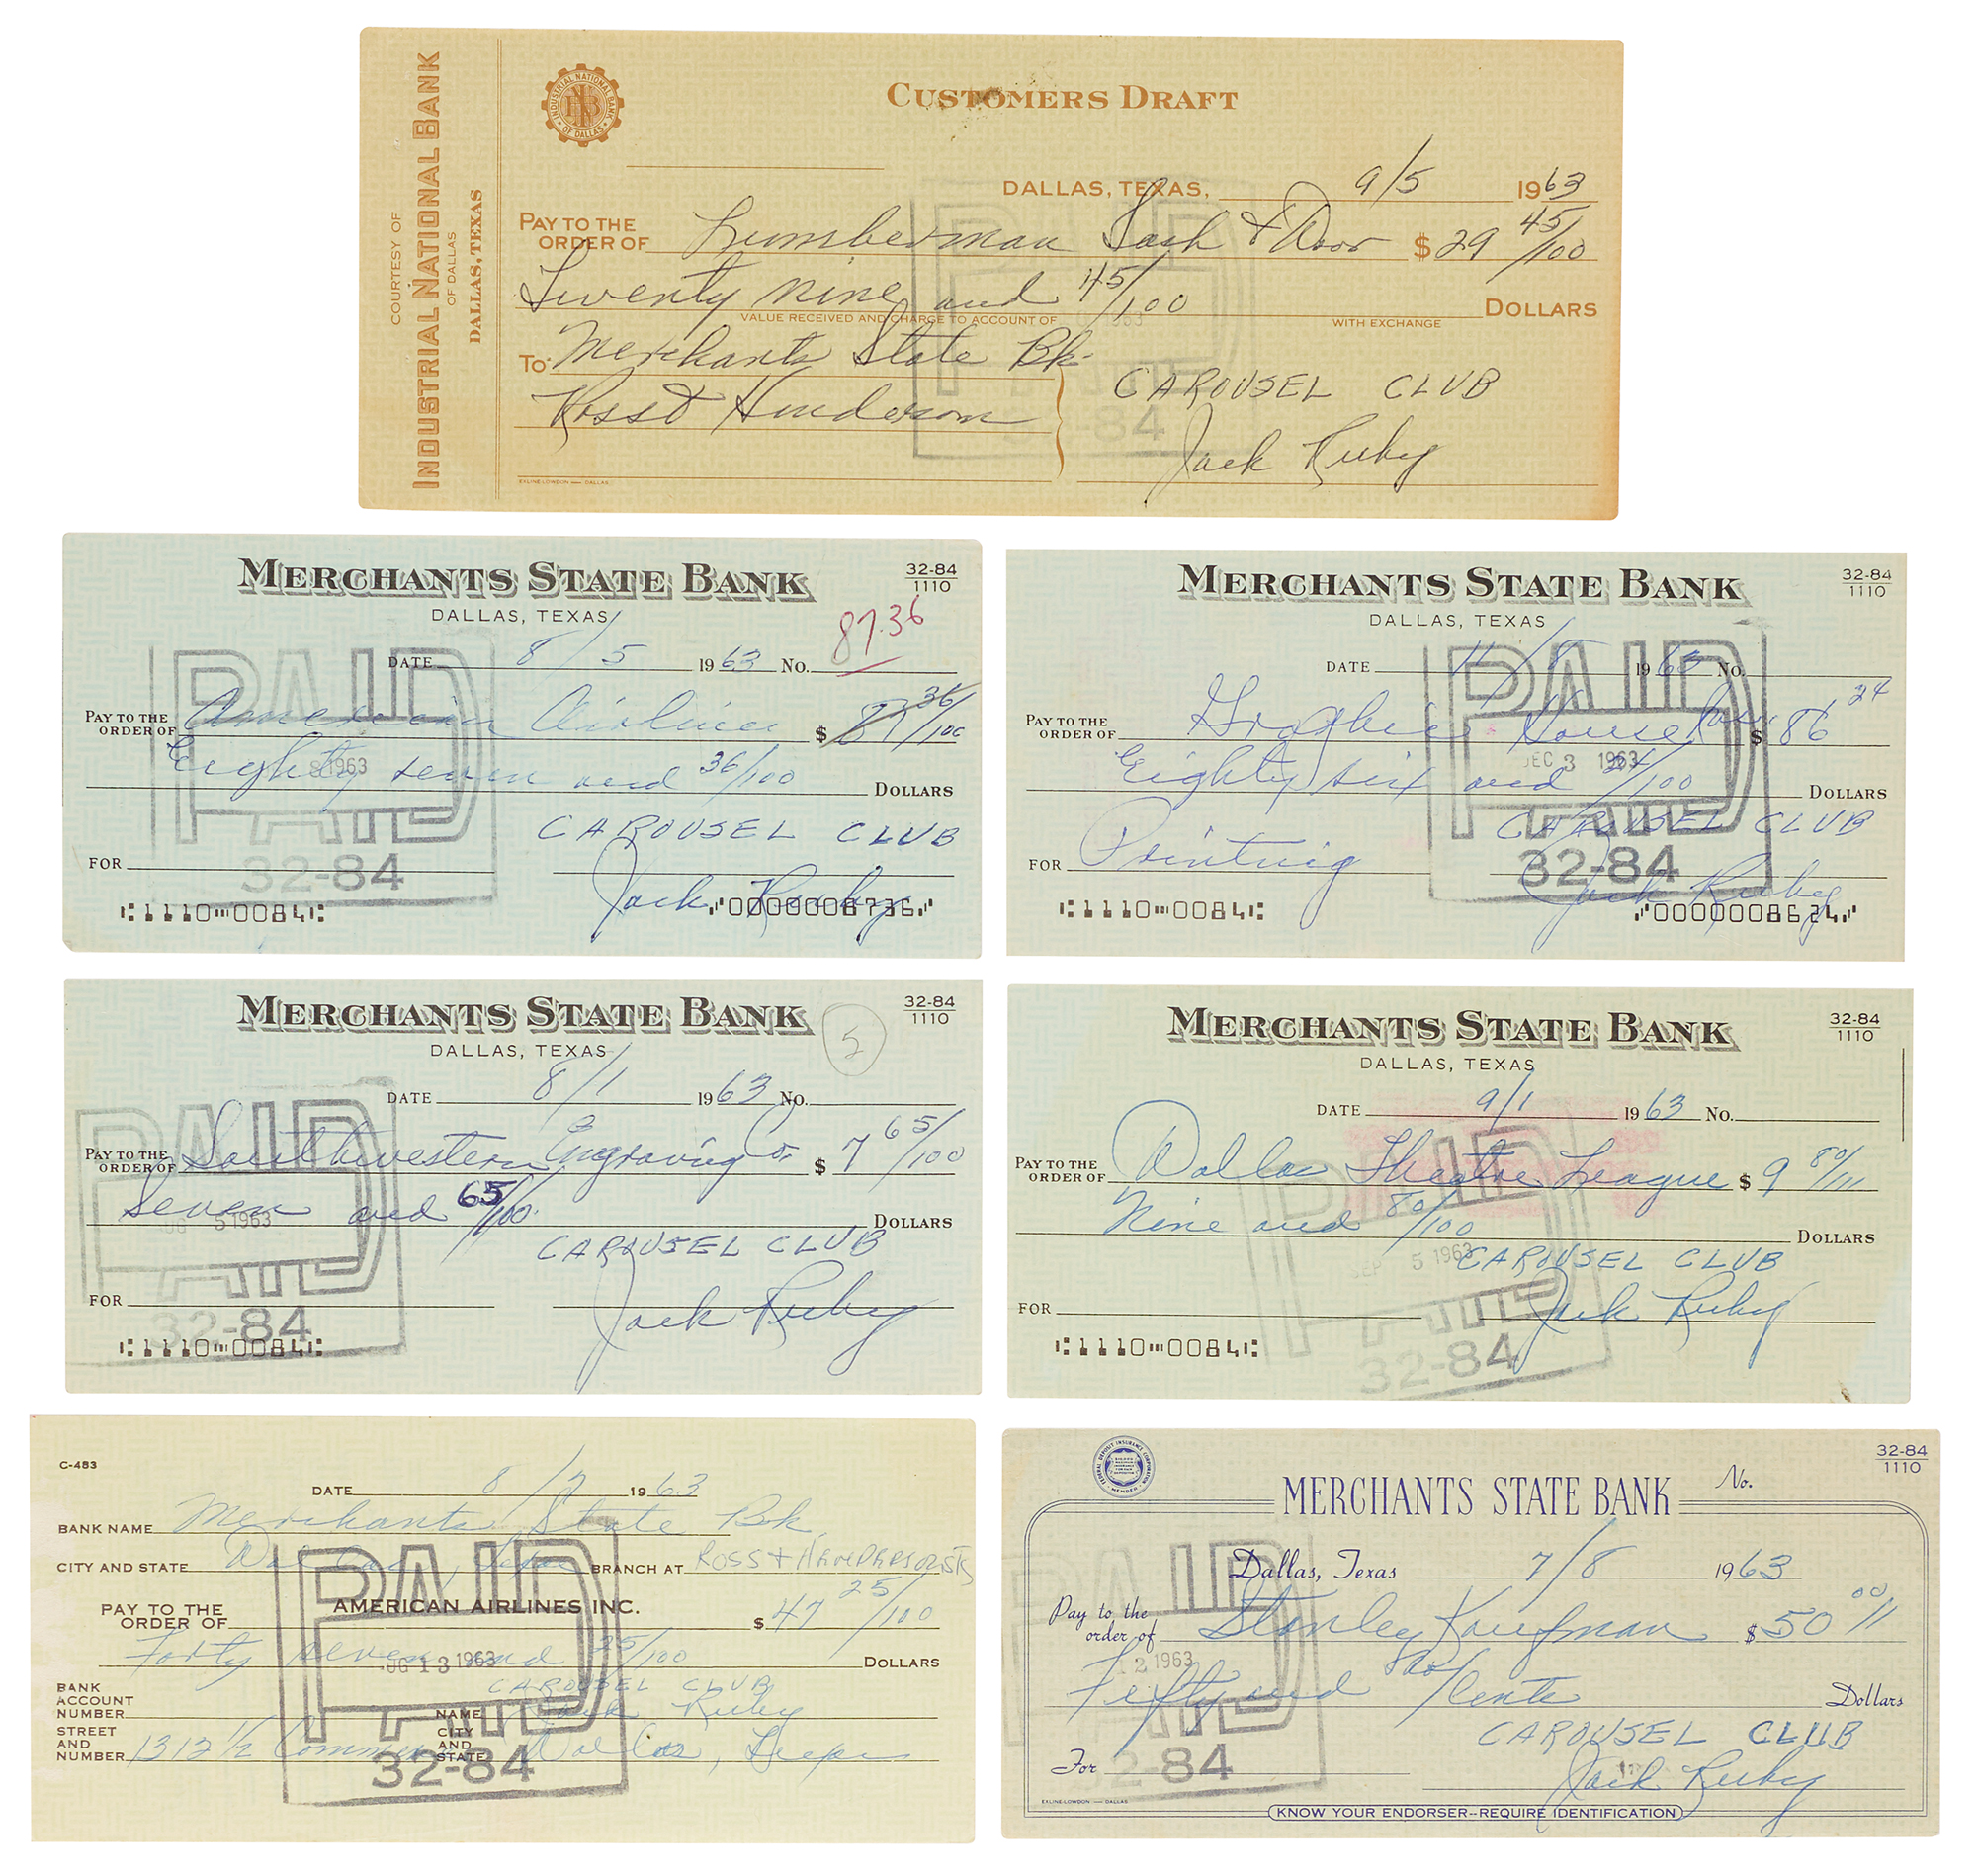 COURTESY OF
INDUSTRIAL NATIONAL BANK
OF DALLAS
DALLAS, TEXAS
INDUSTRIAL NATIONAL BANK OF DALLAS
CUSTOMERS DRAFT
DALLAS, TEXAS, 9/5 1963
PAY TO THE ORDER OF Lumberman Sash & Door $ 29 45/100
Twenty nine and 45/100 DOLLARS
VALUE RECEIVED AND CHARGE TO ACCOUNT OF WITH EXCHANGE
TO Merchants State Bk.
CAROUSEL CLUB
Ross & Henderson
Jack Ruby
EXLINE-LOWDON — DALLAS
PAID
32-84
MERCHANTS STATE BANK
32-84
1110
DALLAS, TEXAS
87.36
DATE 8/5 1963 NO.
PAY TO THE ORDER OF American Airlines $ 87 36/100
Eighty seven and 36/100 DOLLARS
CAROUSEL CLUB
FOR Jack Ruby
PAID
1963
32-84
⑆1110⑉0084⑆ ⑈0000008736⑈
MERCHANTS STATE BANK
32-84
1110
DALLAS, TEXAS
DATE 11/8 1963 No.
PAY TO THE ORDER OF House $ 86 24
Eighty six and 24/100 DOLLARS
CAROUSEL CLUB
FOR Printing Jack Ruby
PAID
DEC 3 1963
32-84
⑆1110⑉0084⑆ ⑈0000008624⑈
MERCHANTS STATE BANK
32-84
1110
DALLAS, TEXAS
5
DATE 8/1 1963 NO.
PAY TO THE ORDER OF Southwestern Engraving Co. $ 7 65/100
Seven and 65/100 DOLLARS
CAROUSEL CLUB
FOR Jack Ruby
PAID
5 1963
32-84
⑆1110⑉0084⑆
MERCHANTS STATE BANK
32-84
1110
DALLAS, TEXAS
DATE 9/1 1963 NO.
PAY TO THE ORDER OF Dallas Theatre League $ 9 80/
Nine and 80/100 DOLLARS
CAROUSEL CLUB
FOR Jack Ruby
PAID
SEP 5 1963
32-84
⑆1110⑉0084⑆
C-483
DATE 8/7 1963
BANK NAME Merchants State Bk.
CITY AND STATE Dallas, Texas BRANCH AT ROSS +
PAY TO THE ORDER OF AMERICAN AIRLINES INC. $ 47 25/100
Forty seven and 25/100 DOLLARS
BANK ACCOUNT NUMBER CAROUSEL CLUB
NAME Jack Ruby
STREET AND NUMBER 1312 1/2 Commerce CITY AND STATE Dallas, Texas
PAID
AUG 13 1963
32-84
FEDERAL DEPOSIT INSURANCE CORPORATION MEMBER
MERCHANTS STATE BANK
No.
32-84
1110
Dallas, Texas 7/8 1963
Pay to the order of Stanley Kaufman $ 50 00
Fifty and no/cents Dollars
CAROUSEL CLUB
For Jack Ruby
PAID
12 1963
32-84
EXLINE-LOWDON — DALLAS
KNOW YOUR ENDORSER--REQUIRE IDENTIFICATION